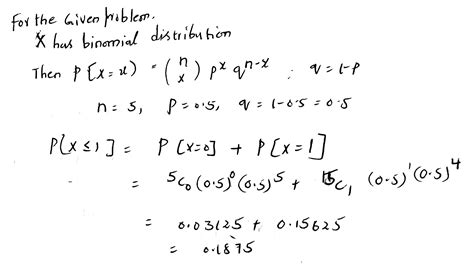 For the Given problem.
X has binomial distribution
Then P[X=x) = (n x) p^x q^n-x ; q = 1-p
n = 5, p = 0.5, q = 1-0.5 = 0.5
P[x ≤ 1] = P[x=0] + P[x=1]
= 5C0 (0.5)^0 (0.5)^5 + 5C1 (0.5)^1 (0.5)^4
= 0.03125 + 0.15625
= 0.1875